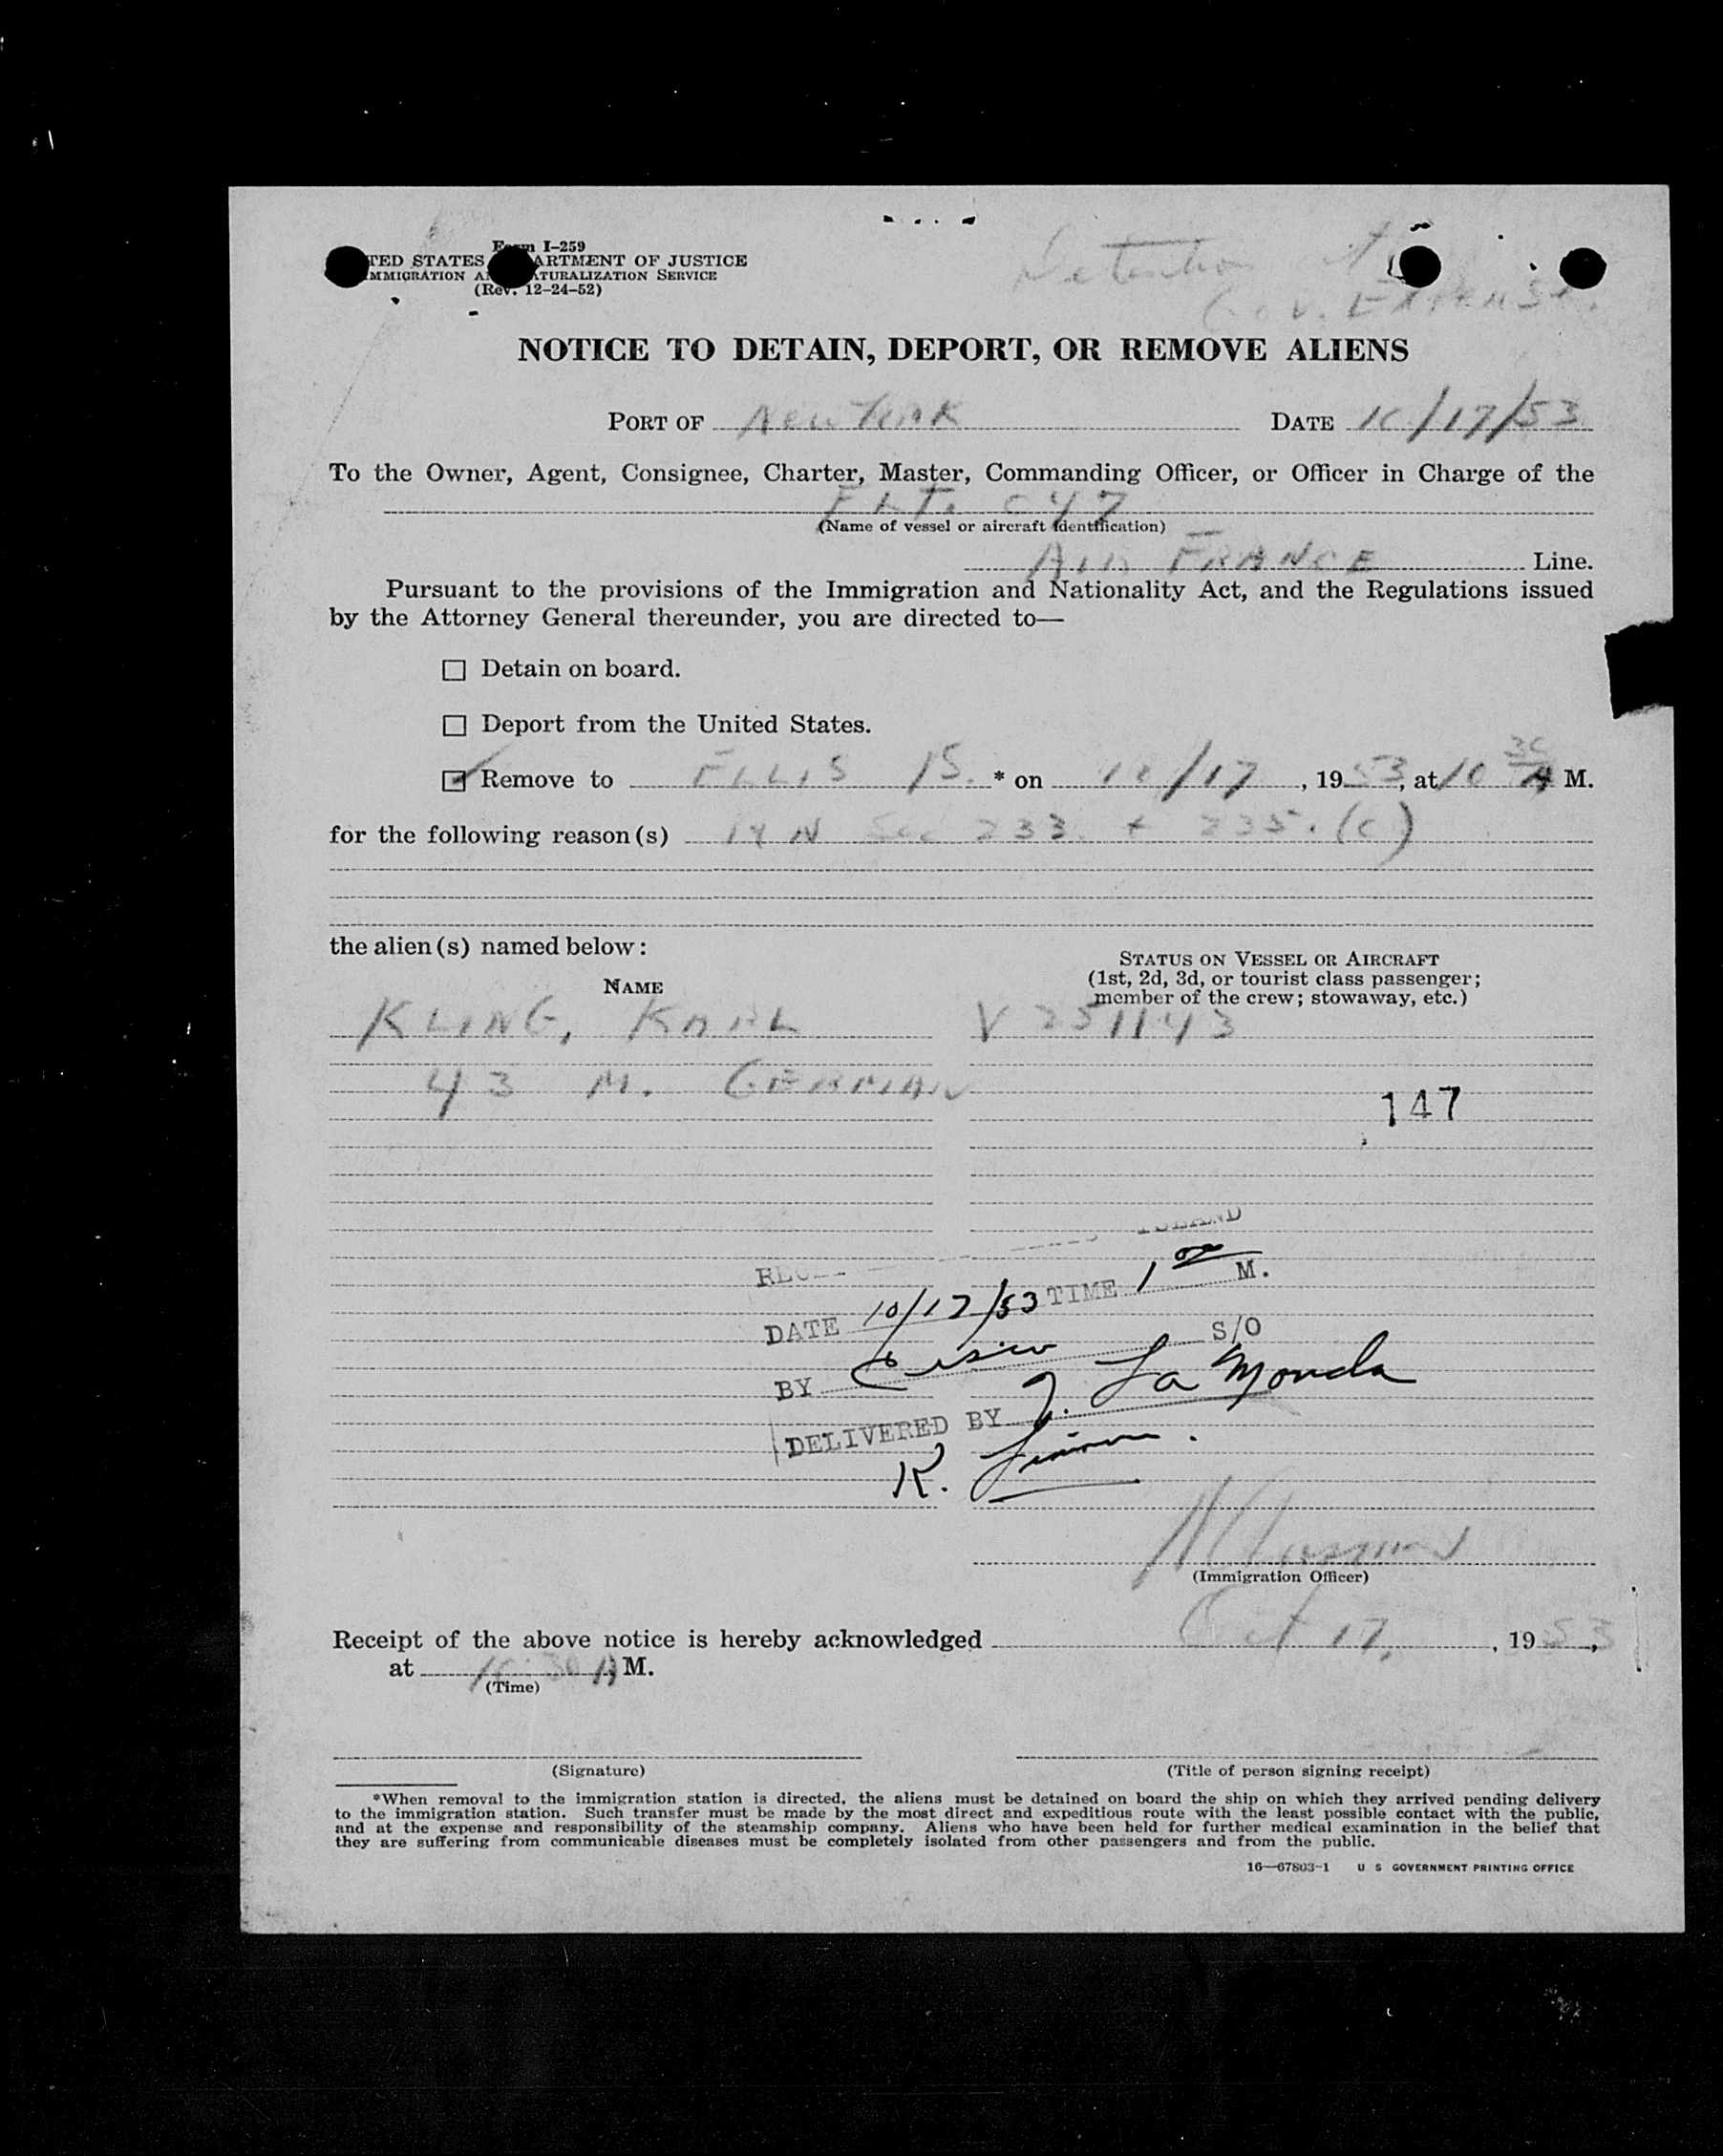 Form I-259
UNITED STATES DEPARTMENT OF JUSTICE
IMMIGRATION AND NATURALIZATION SERVICE
(Rev. 12-24-52)
Detention at
Gov. Expense.
NOTICE TO DETAIN, DEPORT, OR REMOVE ALIENS
PORT OF New York DATE 10/17/53
To the Owner, Agent, Consignee, Charter, Master, Commanding Officer, or Officer in Charge of the
FLT. 047
(Name of vessel or aircraft identification)
AIR FRANCE Line.
Pursuant to the provisions of the Immigration and Nationality Act, and the Regulations issued
by the Attorney General thereunder, you are directed to—
Detain on board.
Deport from the United States.
Remove to ELLIS IS. * on 10/17, 1953, at 10 30 A M.
for the following reason(s) Sec 233. + 235.(c)
the alien(s) named below:
NAME
STATUS ON VESSEL OR AIRCRAFT
(1st, 2d, 3d, or tourist class passenger;
member of the crew; stowaway, etc.)
KLING, KARL V 251143
43 M. GERMAN
147
ISLAND
DATE 10/17/53 TIME 1 00 M.
BY S/O
DELIVERED BY J. La Monda
R.
(Immigration Officer)
Receipt of the above notice is hereby acknowledged Oct 17, , 1953,
at 10:30 A M.
(Time)
(Signature) (Title of person signing receipt)
*When removal to the immigration station is directed, the aliens must be detained on board the ship on which they arrived pending delivery
to the immigration station. Such transfer must be made by the most direct and expeditious route with the least possible contact with the public,
and at the expense and responsibility of the steamship company. Aliens who have been held for further medical examination in the belief that
they are suffering from communicable diseases must be completely isolated from other passengers and from the public.
16—67803-1 U S GOVERNMENT PRINTING OFFICE